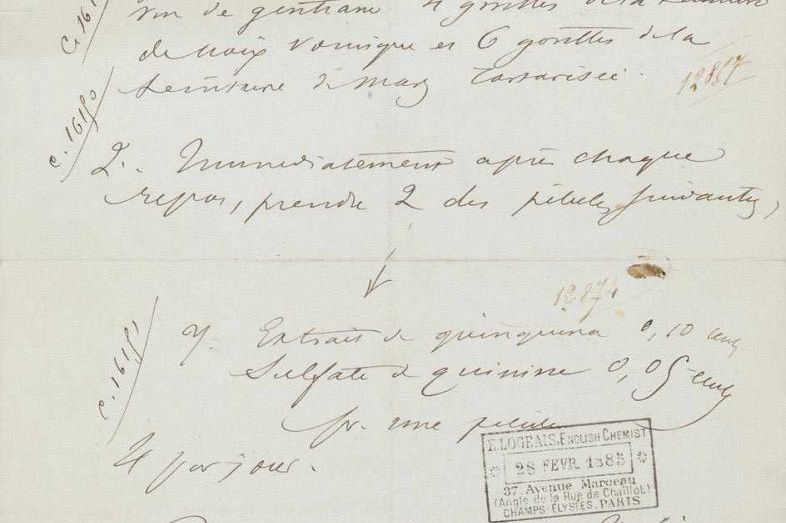 vin de gentiane 4 gouttes de la teinture
de noix vomique et 6 gouttes de la
teinture de mars tartarisée.
12817
c. 16190
2. Immédiatement après chaque
repas, prendre 2 des pilules suivantes,
12874
c. 16191
Extrait de quinquina 0,10 cent
Sulfate de quinine 0,05 cent
pr. une pilule
4 par jour.
E. LOGEAIS, ENGLISH CHEMIST
28 FEVR 1885
37, Avenue Marceau
(Angle de la Rue de Chaillot)
CHAMPS-ELYSÉES, PARIS